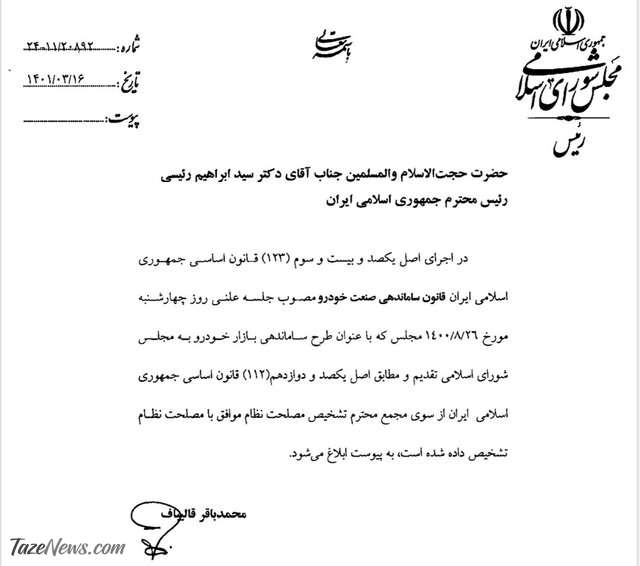 باسمه تعالی
جمهوری اسلامی ایران
مجلس شورای اسلامی
رئیس
شماره: ۲۴-۱۱/۲۰۸۹۲
تاریخ: ۱۴۰۱/۰۳/۱۶
پیوست:
حضرت حجت‌الاسلام والمسلمین جناب آقای دکتر سید ابراهیم رئیسی
رئیس محترم جمهوری اسلامی ایران
در اجرای اصل یکصد و بیست و سوم (۱۲۳) قانون اساسی جمهوری
اسلامی ایران قانون ساماندهی صنعت خودرو مصوب جلسه علنی روز چهارشنبه
مورخ ۱۴۰۰/۸/۲۶ مجلس که با عنوان طرح ساماندهی بازار خودرو به مجلس
شورای اسلامی تقدیم و مطابق اصل یکصد و دوازدهم(۱۱۲) قانون اساسی جمهوری
اسلامی ایران از سوی مجمع محترم تشخیص مصلحت نظام موافق با مصلحت نظام
تشخیص داده شده است، به پیوست ابلاغ می‌شود.
محمدباقر قالیباف
TazeNews.com